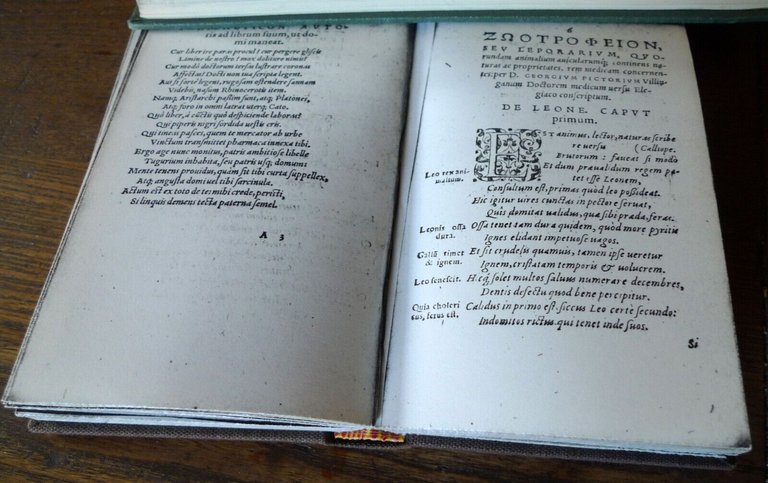 AVTO
ris ad librum suum, ut do
mi maneat.
Cur liber ire paras procul? cur pergere gliscis
Limine de nostro? mox doliture nimis
Cur modò doctorum tersu lustrare coronas
Affectas? Docti non tua scripta legent.
Aut si forte legent, rugosam ostendere sannam
Videbis, nasum Rhinocerotis item.
Namq; Aristarchi passim sunt, atq; Platones,
Atq; foro in omni latrat uterq; Cato.
Quò liber, à cūctis quò despiciende laboras?
Qui piperis nigri sordida uestis eris.
Qui tineas pasces, quem te mercator ab urbe
Vinctum transmittet pharmaca innexa tibi.
Ergo age nunc monitus, patris ambitiose libelle
Tugurium inhabita, seu patris usq; domum
Mente tenens prouidus, quàm sit tibi curta suppellex,
Atq; angusta domi uel tibi sarcinula.
Actum est ex toto de te mihi crede, peristi,
Si linquis demens tecta paterna semel.
A 3
6
ΖΩΟΤΡΟΦΕΙΟΝ,
SEV LEPORARIVM, QVO-
rundam animalium auicularumq; continens na
turas ac proprietates, rem medicam concernen-
tes: per D. GEORGIVM PICTORIVM Villin
ganum Doctorem medicum versu Ele
giaco conscriptum.
DE LEONE. CAPVT
primum.
EST animus, lector, naturas scribe
re uersu (Calliope.
Brutorum: faueat si modò
Et dum praualidum regem pa
Leo rex ani-
malium.
tet esse Leonem,
Consultum est, primas quòd leo possideat.
Hic igitur uires cunctas in pectore seruat,
Quis domitat ualidus, quæ sibi præda, feras.
Leonis ossa
dura.
Ossa tenet tam dura quidem, quòd more pyritæ
Ignes elidant impetuose uagos.
Gallū timet
& ignem.
Et sit crudelis quamuis, tamen ipse ueretur
Ignem, cristatam temporis & uolucrem.
Leo senescit.
Hicq; solet multos saluus numerare decembres,
Dentis defectu quod bene percipitur.
Quia choleri
cus, ferus est.
Calidus in primo est, siccus Leo certè secundo:
Indomitos rictus qui tenet inde suos.
Si